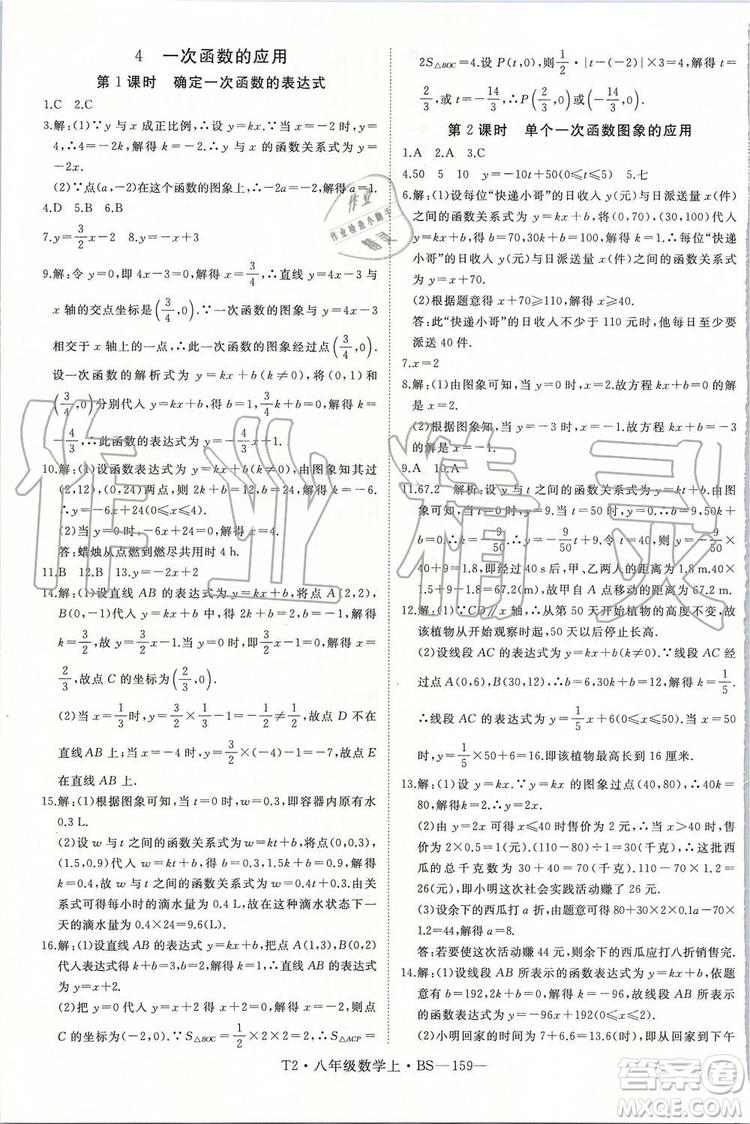 4 一次函数的应用
第1课时 确定一次函数的表达式
1.C 2.C
3.解:(1)∵y 与 x 成正比例,∴设 y=kx,∵当 x=-2 时,y=
4,∴4=-2k,解得 k=-2,∴y 与 x 的函数关系式为 y=
-2x.
(2)∵点(a,-2)在这个函数的图象上,∴-2a=-2,解得 a=1.
4.D 5.B 6.B
7.y=3/2x-2 8.y=-x+3
9.解:令 y=0,即 4x-3=0,解得 x=3/4,∴直线 y=4x-3 与
x 轴的交点坐标是(3/4,0).∵一次函数的图象与 y=4x-3
相交于 x 轴上的一点,∴该函数的图象也经过点(3/4,0).
设一次函数的解析式为 y=kx+b(k≠0),将点(0,1),
(3/4,0)分别代入 y=kx+b,得 b=1,3/4k+b=0,解得 k=
-4/3,∴此函数的表达式为 y=-4/3x+1.
10.解:(1)设函数表达式为 y=kx+b,由图象知其过
(2,12),(0,24)两点,即 2k+b=12,b=24,解得 k=-6.
∴y=-6x+24(0≤x≤4).
(2)当 y=0 时,-6x+24=0,解得 x=4.
答:蜡烛从点燃到燃尽共用时 4 h.
11.B 12.B 13.y=-x+2
14.解:(1)设直线 AB 的表达式为 y=kx+b,将点 A(2,2),
B(0,-1)代入 y=kx+b 中,得 2k+b=2,b=-1,解得
k=3/2,∴y=3/2x-1.当 y=0 时,即 3/2x-1=0,解得 x=
2/3,故点 C 的坐标为(2/3,0).
(2)当 x=-1 时,y=3/2×(-1)-1≠0,故点 D 不在
直线 AB 上;当 x=-2 时,y=3/2×(-2)-1=-4,故点 E
在直线 AB 上.
15.解:(1)根据图象可知,当 t=0 时,w=0.3,即容器内原有水
0.3 L.
(2)设 w 与 t 之间的函数关系式为 w=kt+b,将点(0,0.3),
(1.5,0.9)代入,得 b=0.3,1.5k+b=0.9,解得 k=0.4.
故 w 与 t 之间的函数关系式为 w=0.4t+0.3.由函数关系式
可得每小时的滴水量为 0.4 L,故在这种滴水状态下一天
的滴水量为 0.4×24=9.6(L).
16.解:(1)设直线 AB 的表达式为 y=kx+b,把点 A(1,3),B(0,2)
代入表达式得 k+b=3,b=2,解得 k=1,故直线 AB 的表达式为
y=x+2.
(2)把点 C 代入 y=x+2 得 x+2=0,解得 x=-2,则点
C 的坐标为(-2,0).∵S△BOC=1/2×2×2=2,∴S△ACP=
2S△BOC=4.设 P(t,0),则 1/2·|t-(-2)|×3=4,解得 t=
2/3,或 t=-14/3.故点 P 的坐标为(2/3,0)或(-14/3,0).
第2课时 单个一次函数图象的应用
1.A 2.A 3.C
4.50 5 10 y=-10t+50(0≤t≤5) 5.七
6.解:(1)设每位“快递小哥”的日收入 y(元)与日派送量 x(件)
之间的函数关系式为 y=kx+b,将(0,70),(30,100)代入
y=kx+b,得 b=70,30k+b=100,解得 k=1,∴每位“快
递小哥”的日收入 y(元)与日派送量 x(件)之间的函数关系
式为 y=x+70.
(2)根据题意得 x+70≥110,解得 x≥40.
答:此“快递小哥”的日收入不少于 110 元,则他至少要派
送 40 件.
7.x=2
8.解:(1)由图象可知,当 y=0 时,x=2,故方程 kx+b=0 的
解是 x=2.
(2)根据图象知,当 y=-3 时,x=-1,故方程 kx+b=-3
的解是 x=-1.
9.A 10.A
11.67.2 解析:设 y 与 t 之间的函数关系式为 y=kt+b.由图
象可知,当 t=0 时,y=9,当 t=50 时,y=0,代入关系式,得
b=9,50k+b=0,解得 k=-9/50,∴y=-9/50t+9.令 y=-9/50×
40+9=1.8,即经过 40 s 后,甲、乙两人的距离为 1.8 m.40×
1.5+9-1.8=67.2(m),故甲自 A 点移动的距离为 67.2 m.
12.解:(1)∵CD∥x 轴,∴从第 50 天开始植物的高度不变,故
该植物从开始观察时起,50 天以后停止长高.
(2)设线段 AC 的表达式为 y=kx+b(k≠0).∵线段 AC 经
过点 A(0,6),B(30,12),∴b=6,30k+b=12,解得 k=1/5,
∴线段 AC 的表达式为 y=1/5x+6(0≤x≤50).当 x=50
时,y=1/5×50+6=16,即该植物最高长到 16 厘米.
13.解:(1)设关系式是 y=kx,∵y=kx 的图象过点(40,80),∴40k=
80,解得 k=2,∴y=2x(0≤x≤40).
(2)由(1)知降价前西瓜售价为每千克 2 元.当 x>40 时售价为
每千克 2×0.5=1(元).∴这两天售出西
瓜的总千克数为 50千克.76-50×1=
26(元),即小明这次社会实践活动赚了 26 元.
(3)设余下的西瓜打 a 折出售,由题意,得
解得 a=8.
答:若希望这次活动赚 44 元,则余下的西瓜应打八折销售完.
14.解:(1)设线段 AB 所表示的函数关系式为 y=kx+b,依题意
有 b=192,2k+b=0,解得 k=-96,b=192,故线段 AB 所表示
的函数关系式为 y=-96x+192(0≤x≤2).
(2)小明回家的时间为 7+6.6=13.6(时),即需从家回到下午
T2·八年级数学上·BS—159—